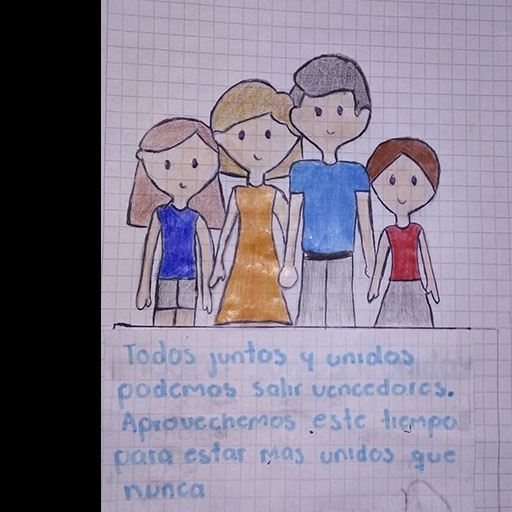 Todos juntos y unidos
podemos salir vencedores.
Aprovechemos este tiempo
para estar mas unidos que
nunca